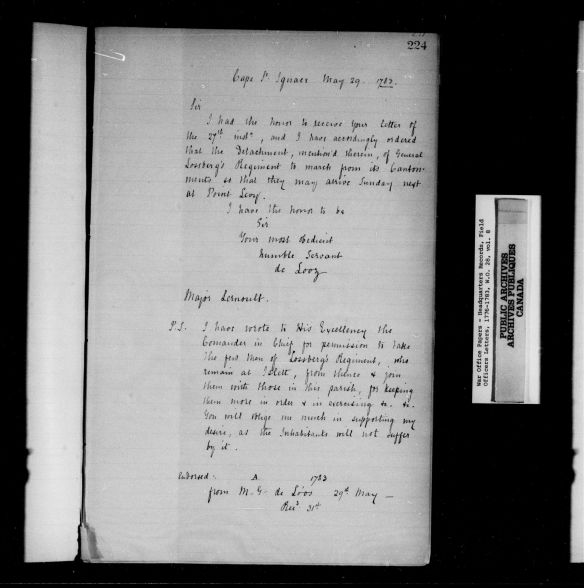 224
Cape St. Ignace May 29. 1783.
Sir
I had the honor to receive your letter of
the 27th inst., and I have accordingly ordered
that the Detachment, mention'd therein, of General
Lossberg's Regiment to march from its Canton-
ments so that they may arrive Sunday next
at Point Levy.
I have the honor to be
Sir
Your most Obedient
humble Servant
de Loos
Major Lernoult.
P.S. I have wrote to His Excellency the
Comander in Chief for permission to take
the few men of Lossberg's Regiment, who
remain at Islett, from thence & join
them with those in this parish, for keeping
them more in order & in exercising &c. &c.
You will oblige me much in supporting my
desire, as the Inhabitants will not suffer
by it.
Endorsed:. A. 1783
from M. G. de Loos 29th May —
Recd 31st
War Office Papers - Headquarters Records, Field
Officers Letters, 1776-1783, W.O. 28, vol. 8
PUBLIC ARCHIVES
ARCHIVES PUBLIQUES
CANADA